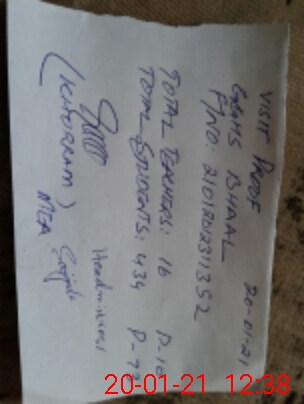 VISIT PROOF 20-01-21
GGHS BHAAL
F/NO: 2101202311352
TOTAL TEACHERS: 16 P-16
TOTAL STUDENTS: 434 P-
Headmistress
MEA
20-01-21 12:38